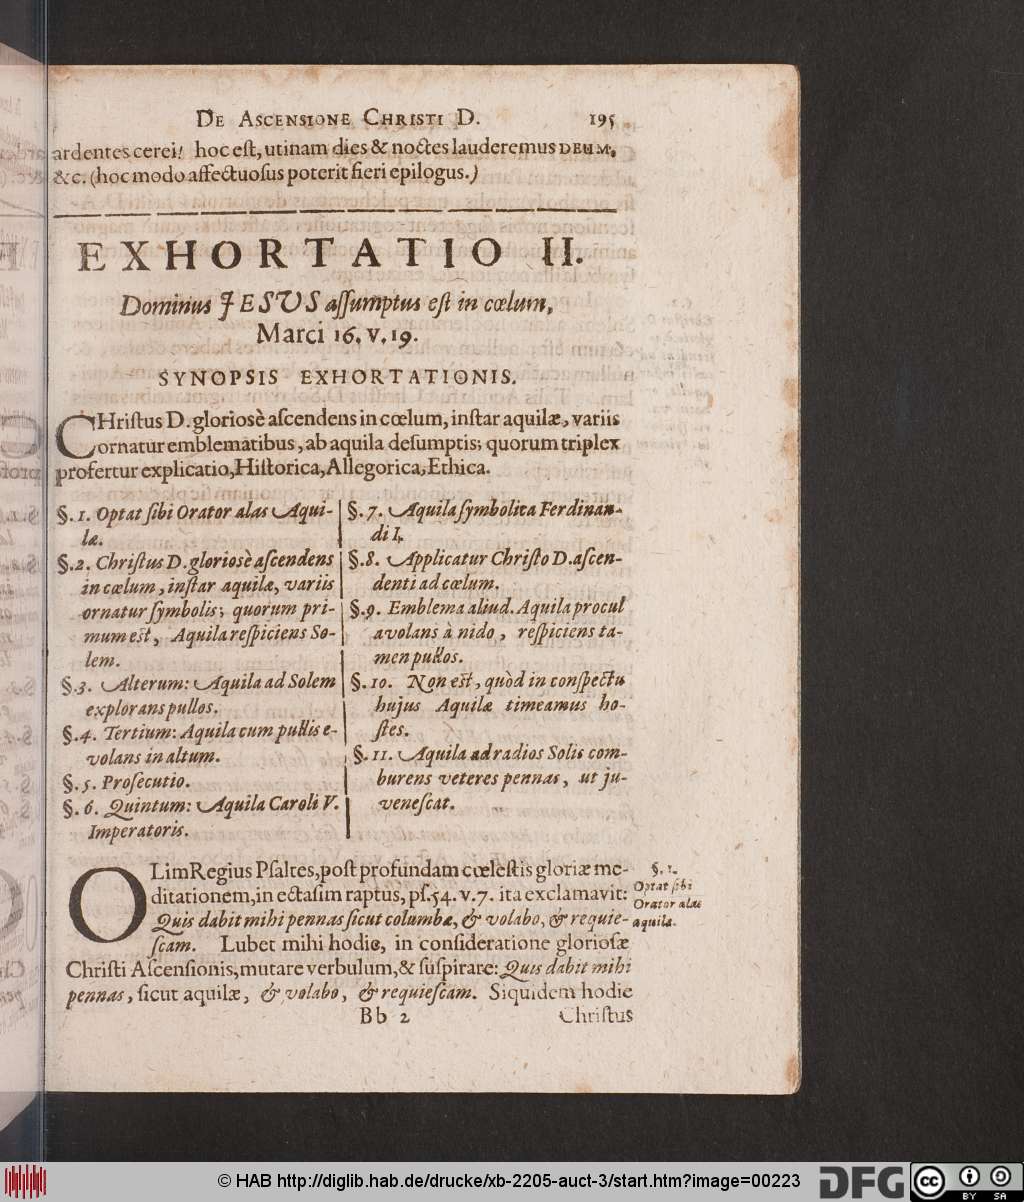 DE ASCENSIONE CHRISTI D. 195
ardentes cerei! hoc est, utinam dies & noctes lauderemus DEUM,
&c. (hoc modo affectuosus poterit fieri epilogus.)
EXHORTATIO II.
Dominus JESUS assumptus est in cœlum,
Marci 16. v. 19.
SYNOPSIS EXHORTATIONIS.
CHristus D. gloriosè ascendens in cœlum, instar aquilæ, variis
ornatur emblematibus, ab aquila desumptis; quorum triplex
profertur explicatio, Historica, Allegorica, Ethica.
§. 1. Optat sibi Orator alas Aqui-
læ.
§. 2. Christus D. gloriosè ascendens
in cœlum, instar aquilæ, variis
ornatur symbolis; quorum pri-
mum est, Aquila respiciens So-
lem.
§. 3. Alterum: Aquila ad Solem
explorans pullos.
§. 4. Tertium: Aquila cum pullis e-
volans in altum.
§. 5. Prosecutio.
§. 6. Quintum: Aquila Caroli V.
Imperatoris.
§. 7. Aquila symbolica Ferdinan-
di I.
§. 8. Applicatur Christo D. ascen-
denti ad cœlum.
§. 9. Emblema aliud. Aquila procul
avolans à nido, respiciens ta-
men pullos.
§. 10. Non est, quòd in conspectu
hujus Aquilæ timeamus ho-
stes.
§. 11. Aquila ad radios Solis com-
burens veteres pennas, ut ju-
venescat.
OLim Regius Psaltes, post profundam cœlestis gloriæ me-
ditationem, in ectasim raptus, ps. 54. v. 7. ita exclamavit:
Quis dabit mihi pennas sicut columbæ, & volabo, & requie-
scam. Lubet mihi hodie, in consideratione gloriosæ
Christi Ascensionis, mutare verbulum, & suspirare: Quis dabit mihi
pennas, sicut aquilæ, & volabo, & requiescam. Siquidem hodie
§. 1.
Optat sibi
Orator alas
aquilæ.
Bb 2 Christus
© HAB http://diglib.hab.de/drucke/xb-2205-auct-3/start.htm?image=00223
DFG
cc BY SA